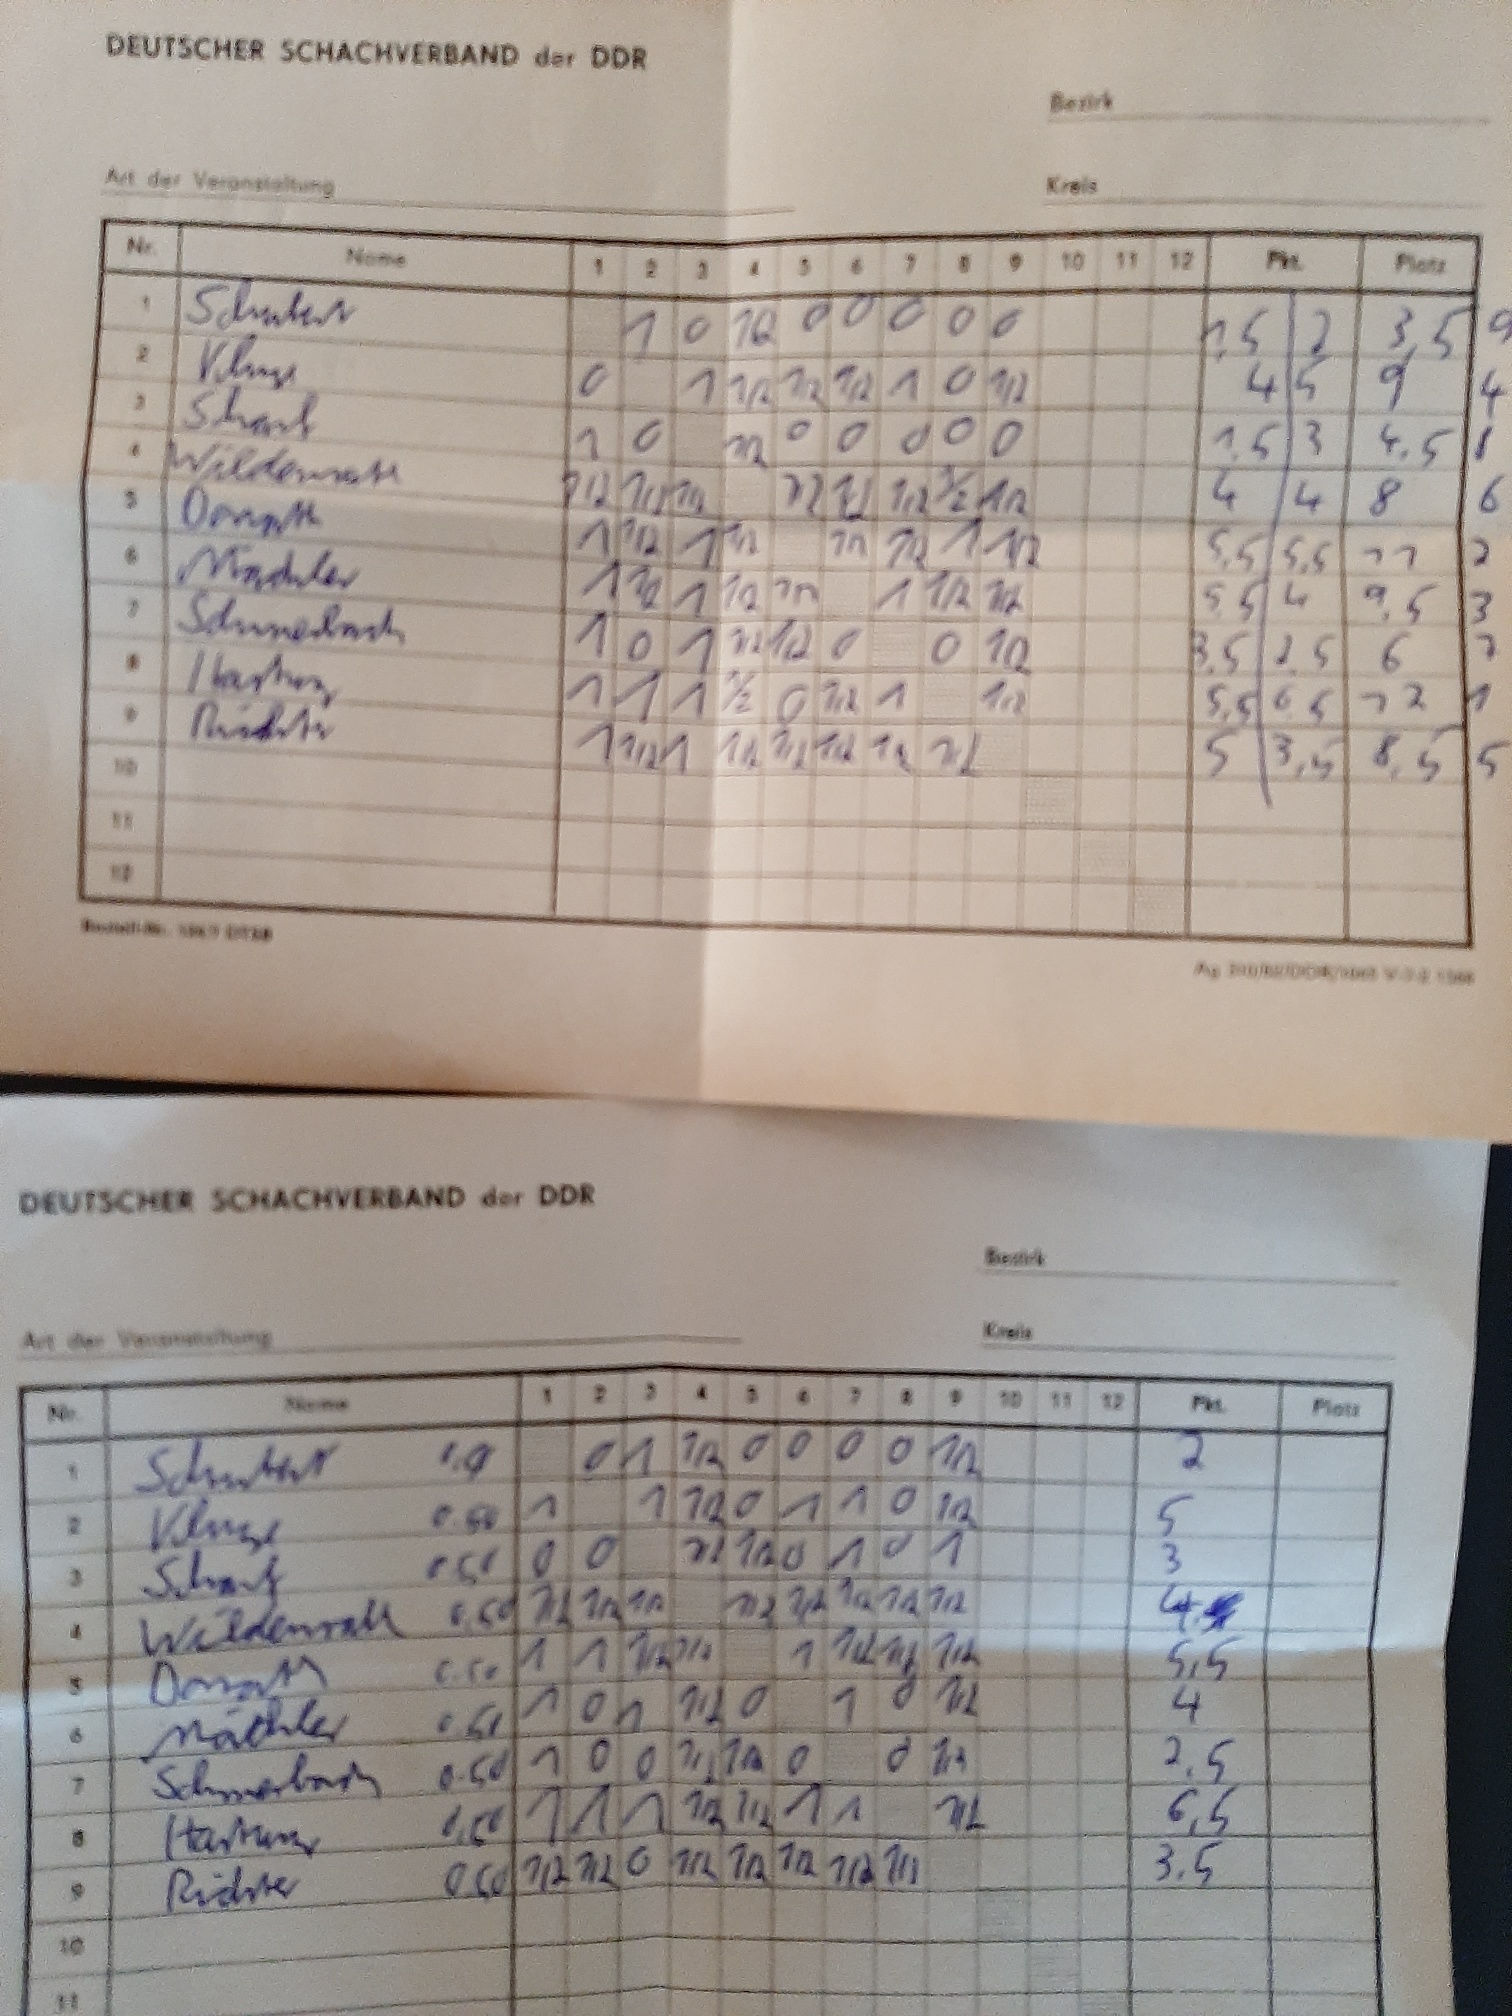 DEUTSCHER SCHACHVERBAND der DDR
Bezirk
Art der Veranstaltung
Kreis
Nr. Name 1 2 3 4 5 6 7 8 9 10 11 12 Pkt. Platz
1 Schubert 1 0 1/2 0 0 0 0 0 1,5 2 3,5 9
2 Kluge 0 1 1/2 1/2 1/2 1 0 1/2 4 5 9 4
3 1 0 1/2 0 0 0 0 0 1,5 3 4,5 8
4 Wildenrath 1/2 1/2 1/2 1/2 1/2 1/2 1/2 1/2 4 4 8 6
5 Donath 1 1/2 1 1/2 1/2 1/2 1 1/2 5,5 5,5 11 2
6 Mächler 1 1/2 1 1/2 1/2 1 1/2 1/2 5,5 4 9,5 3
7 1 0 1 1/2 1/2 0 0 1/2 3,5 2,5 6 7
8 Hartung 1 1 1 1/2 0 1/2 1 1/2 5,5 6,5 12 1
9 Richter 1 1/2 1 1/2 1/2 1/2 1/2 1/2 5 3,5 8,5 5
10
11
12
DEUTSCHER SCHACHVERBAND der DDR
Bezirk
Art der Veranstaltung
Kreis
Nr. Name 1 2 3 4 5 6 7 8 9 10 11 12 Pkt. Platz
1 Schubert 0 1 1/2 0 0 0 0 1/2 2
2 Kluge 0.50 1 1 1/2 0 1 1 0 1/2 5
3 0.50 0 0 1/2 1/2 0 1 0 1 3
4 Wildenrath 0.50 1/2 1/2 1/2 1/2 1/2 1/2 1/2 1/2 4
5 Donath 0.50 1 1 1/2 1/2 1 1/2 1/2 1/2 5,5
6 Mächler 0.50 1 0 1 1/2 0 1 0 1/2 4
7 0.50 1 0 0 1/2 1/2 0 0 1/2 2,5
8 Hartung 0,50 1 1 1 1/2 1/2 1 1 1/2 6,5
9 Richter 0.50 1/2 1/2 0 1/2 1/2 1/2 1/2 1/2 3.5
10
11